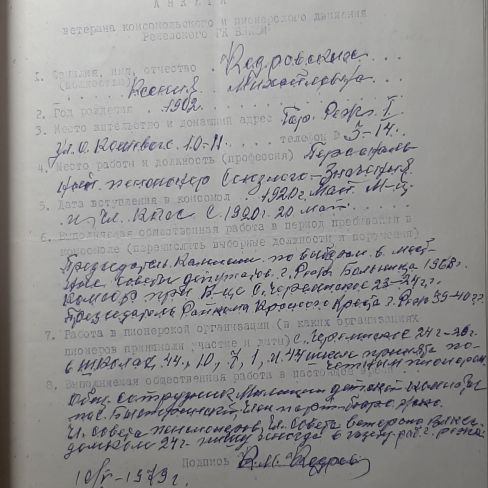 АНКЕТА
ветерана комсомольского и пионерского движения
Режевского ГК ВЛКСМ
1. Фамилия, имя, отчество Кадровских
Ксения Михайловна
2. Год рождения 1902
3. Место жительство и домашний адрес Гор. Реж. I
Ул. О. Кошевого. 10-11 телефон 5-14.
4. Место работы и должность (профессия) Персональ
ный пенсионер Союзного Значения
5. Дата вступления в комсомол 1920г. Май. М-ц.
и чл. КПСС с 1920г. 20 май
6. Выполняемая общественная работа в период пребывания в
комсомоле (перечислить выборные должности и поручения)
Председатель Комиссии по выборам в мест
ные советы депутатов г. Реж. Больница 1968г.
23-24гг.
председатель Райкома Красного Креста г. Реж 39-40гг.
7. Работа в пионерской организации (в каких организациях
пионеров принимали участие и даты) с. 24г-
в школах 44, 10, 7, 1, и 44 школе принята по-
четным пионером
8. Выполняемая общественная работа в настоящее время
Общ. сотрудник Милиции детской комнаты
пос. Быстринский, Член парт-бюро
Чл. Совета пенсионеров, чл. Совета ветерана
24г. пишу иногда в газету
Подпись
10/V-1979г.